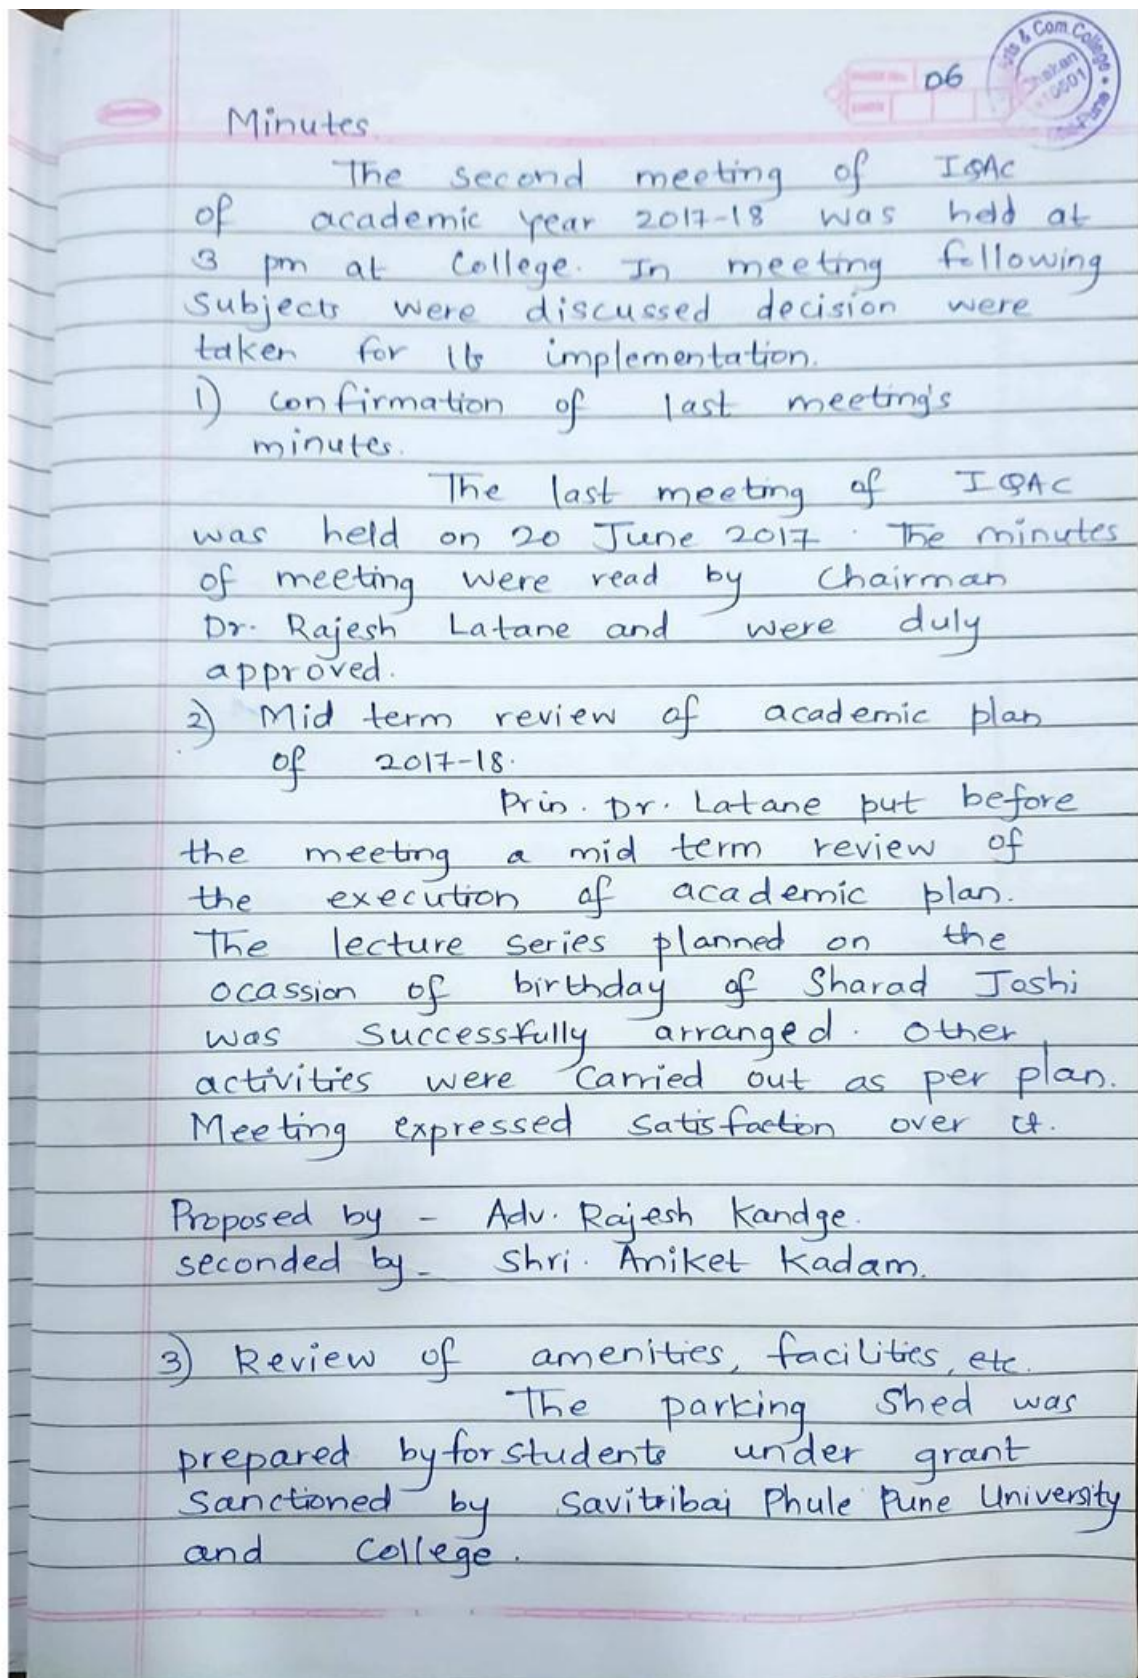 06
Arts & Com. College
Chakan
Minutes.
The second meeting of IQAC
of academic year 2017-18 was held at
3 pm at College. In meeting following
Subjects were discussed decision were
taken for its implementation.
1) confirmation of last meeting's
minutes.
The last meeting of IQAC
was held on 20 June 2017. The minutes
of meeting were read by Chairman
Dr. Rajesh Latane and were duly
approved.
2) Mid term review of academic plan
of 2017-18.
Prin. Dr. Latane put before
the meeting a mid term review of
the execution of academic plan.
The lecture series planned on the
ocassion of birthday of Sharad Joshi
was successfully arranged. Other
activities were carried out as per plan.
Meeting expressed satisfaction over it.
Proposed by - Adv. Rajesh Kandge.
seconded by - Shri. Aniket Kadam.
3) Review of amenities, facilities, etc.
The parking shed was
prepared by for students under grant
Sanctioned by Savitribai Phule Pune University
and College.